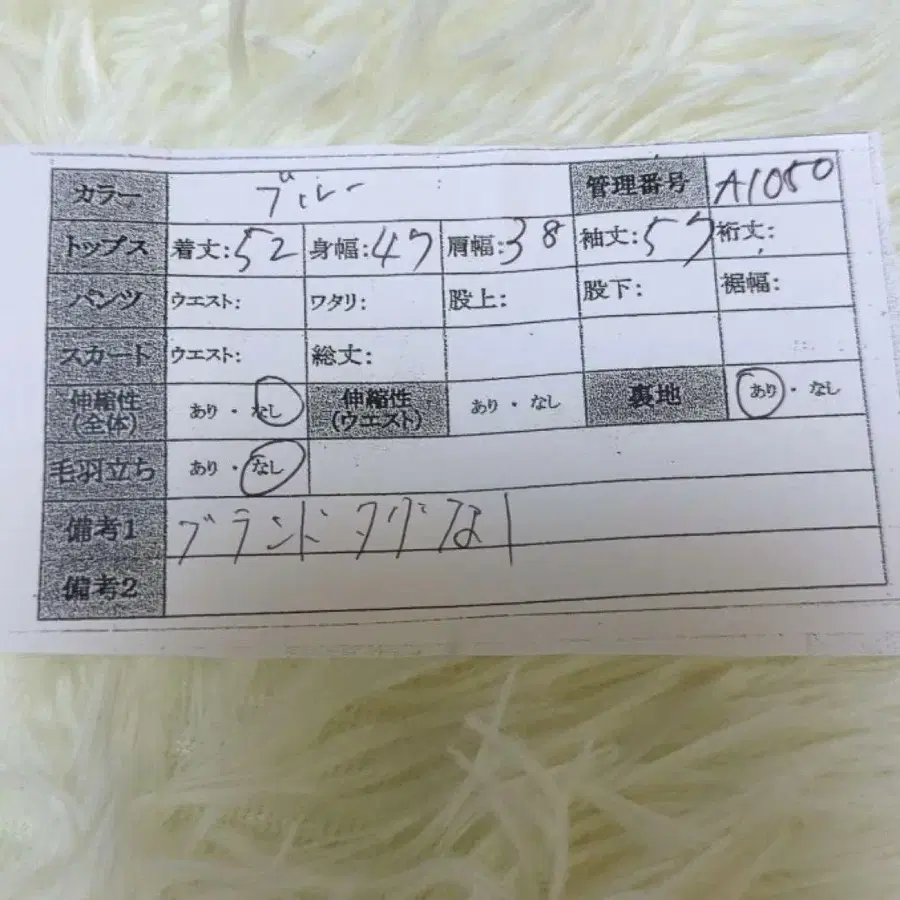 カラー ブルー 管理番号 A1050
トップス 着丈:52 身幅:47 肩幅:38 袖丈:57 裄丈:
パンツ ウエスト: ワタリ: 股上: 股下: 裾幅:
スカート ウエスト: 総丈:
伸縮性(全体) あり・なし 伸縮性(ウエスト) あり・なし 裏地 あり・なし
毛羽立ち あり・なし
備考1 ブランドタグなし
備考2